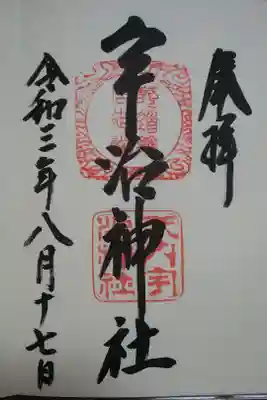 奉拝
宇治神社
令和三年八月十七日